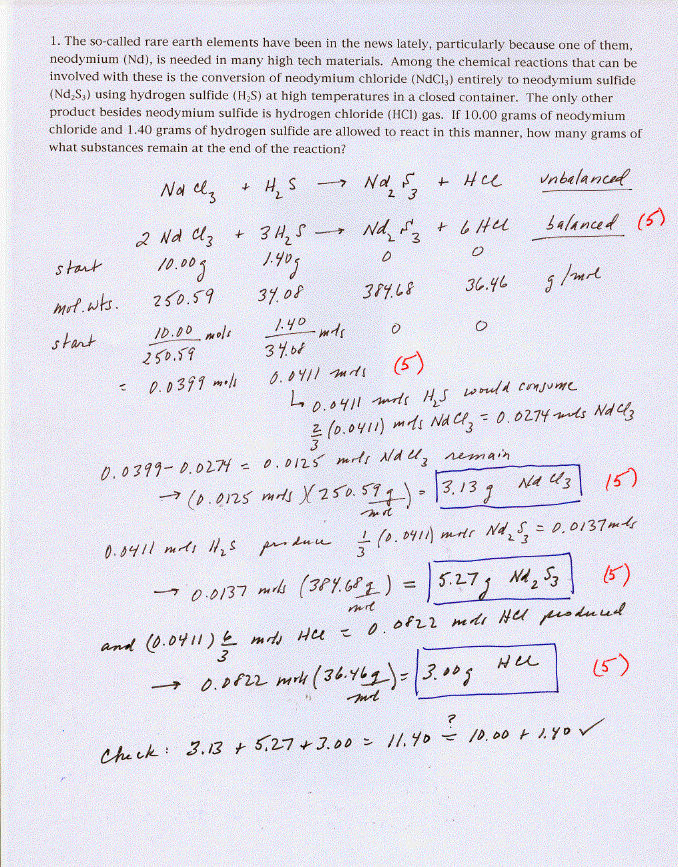 1. The so-called rare earth elements have been in the news lately, particularly because one of them,
neodymium (Nd), is needed in many high tech materials. Among the chemical reactions that can be
involved with these is the conversion of neodymium chloride (NdCl₃) entirely to neodymium sulfide
(Nd₂S₃) using hydrogen sulfide (H₂S) at high temperatures in a closed container. The only other
product besides neodymium sulfide is hydrogen chloride (HCl) gas. If 10.00 grams of neodymium
chloride and 1.40 grams of hydrogen sulfide are allowed to react in this manner, how many grams of
what substances remain at the end of the reaction?
Nd Cl₃ + H₂S → Nd₂S₃ + HCl unbalanced
2 Nd Cl₃ + 3 H₂S → Nd₂S₃ + 6 HCl balanced (5)
start 10.00g 1.40g 0 0
mol. wts. 250.59 34.08 384.68 36.46 g/mol
start 10.00/250.59 mols 1.40/34.08 mols 0 0
= 0.0399 mols 0.0411 mols (5)
↳ 0.0411 mols H₂S would consume
2/3 (0.0411) mols NdCl₃ = 0.0274 mols NdCl₃
0.0399 - 0.0274 = 0.0125 mols NdCl₃ remain
→ (0.0125 mols)(250.59 g/mol) = 3.13 g NdCl₃ (5)
0.0411 mols H₂S produce 1/3 (0.0411) mols Nd₂S₃ = 0.0137 mols
→ 0.0137 mols (384.68 g/mol) = 5.27g Nd₂S₃ (5)
and (0.0411) 6/3 mols HCl = 0.0822 mols HCl produced
→ 0.0822 mols (36.46 g/mol) = 3.00g HCl (5)
Check: 3.13 + 5.27 + 3.00 = 11.40 ≟ 10.00 + 1.40 ✓